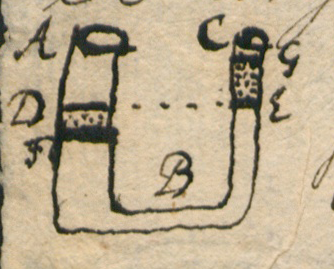 A C G
D E
F
B